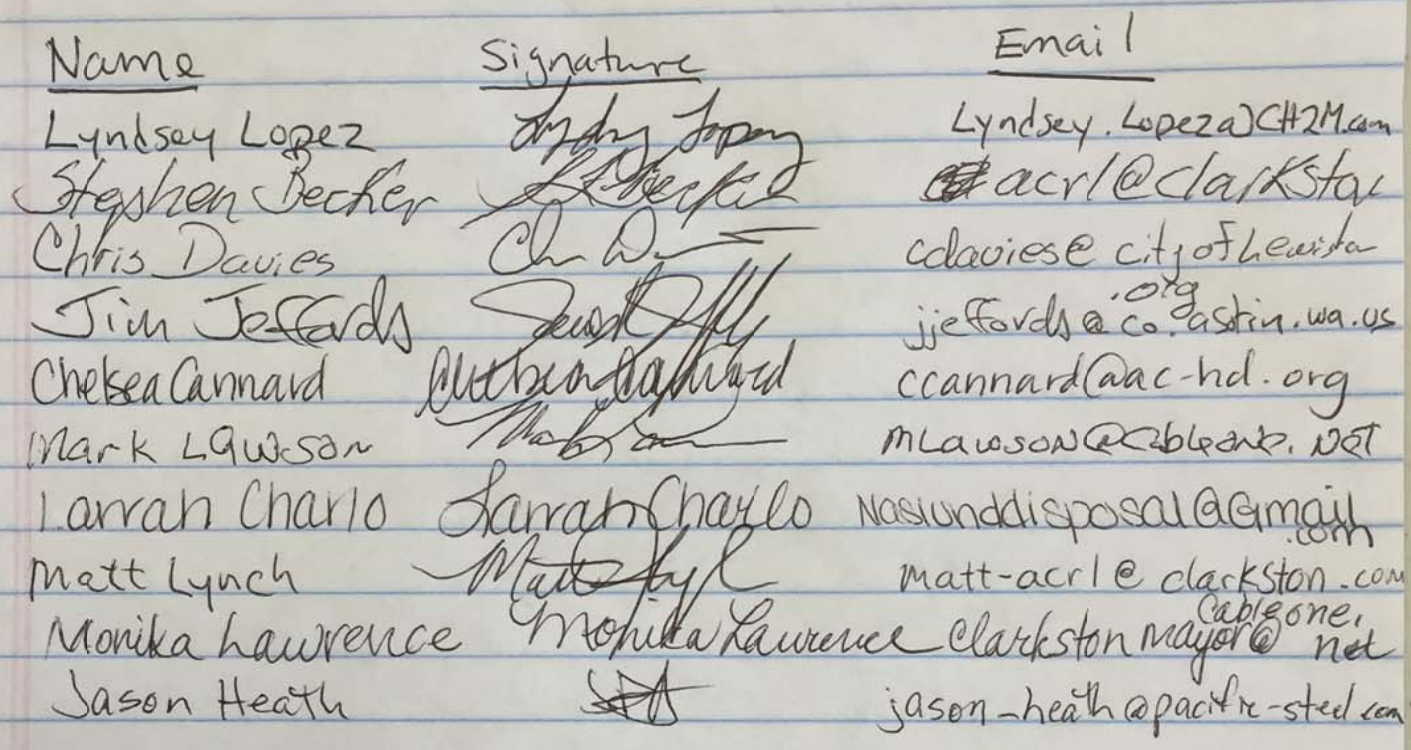 Name Signature Email
Lyndsey Lopez Lyndsey Lopez Lyndsey.Lopez@CH2M.com
Stephen Becker acrl@clarkston
Chris Davies cdavies@cityoflewiston
.org
Jim Jeffords jjeffords@co.asotin.wa.us
Chelsea Cannard Chelsea Cannard ccannard@ac-hd.org
Mark Lawson mLawson@cableone.net
Larrah Charlo Larrah Charlo Nasiunddisposal@Gmail
.com
Matt Lynch matt-acrl@clarkston.com
Cableone.
Monika Lawrence Monika Lawrence Clarkston mayor@ net
Jason Heath jason_heath@pacific-steel.com